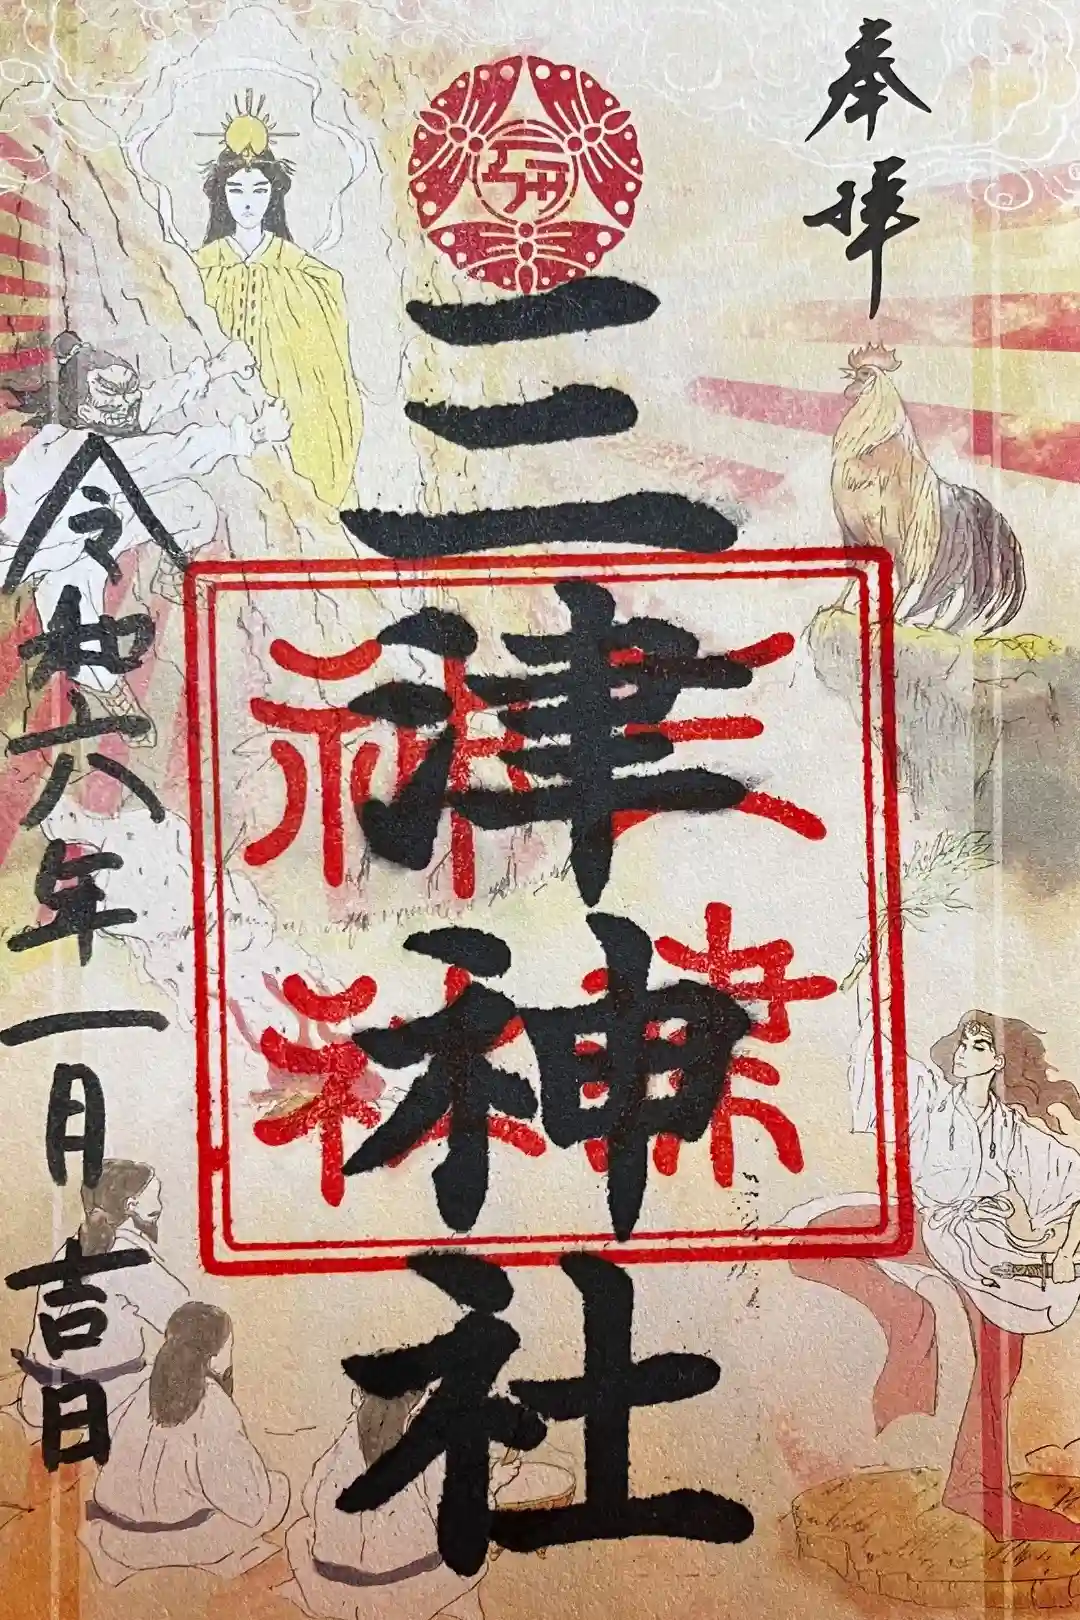 奉拝
三津神社
三津神社
令和六年一月吉日